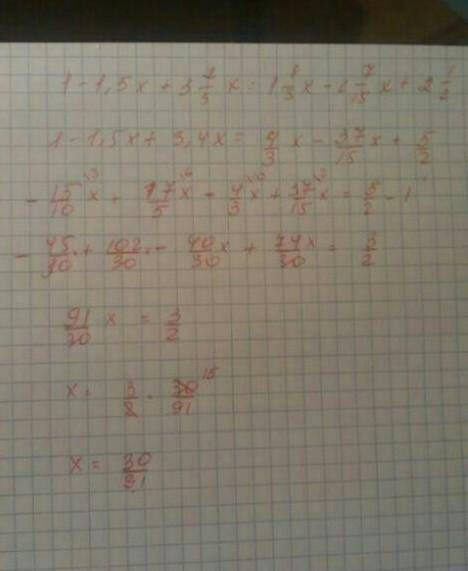 1 - 1,5x + 3 2/5 x = 1 1/3 x - 2 7/15 x + 2 1/2
1 - 1,5x + 3,4x = 4/3 x - 37/15 x + 5/2
- 15/10 x + 17/5 x - 4/3 x + 37/15 x = 5/2 - 1
- 45/30 + 102/30 - 40/30 x + 74/30 x = 3/2
91/30 x = 3/2
x = 3/2 · 30/91 15